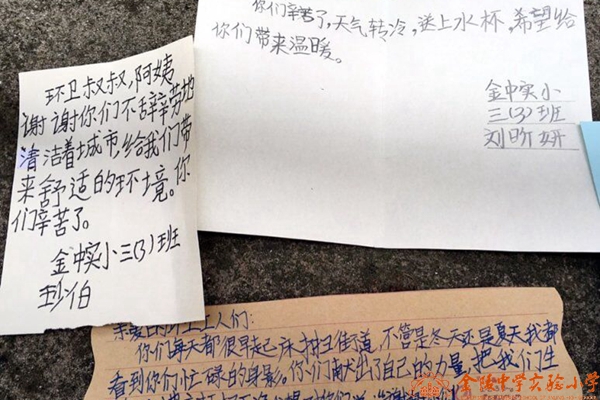 环卫叔叔,阿姨
谢谢你们不辞辛劳地
清洁着城市,给我们带
来舒适的环境。你
们辛苦了。
金中实小三(3)班
你们辛苦了,天气转冷,送上水杯,希望给
你们带来温暖。
金中实小
三(3)班
刘昕妍
亲爱的环卫工人们:
你们每天都很早起床扫街道,不管是冬天还是夏天我都
看到你们忙碌的身影。你们献出了自己的力量,把我们生
金陵中学实验小学